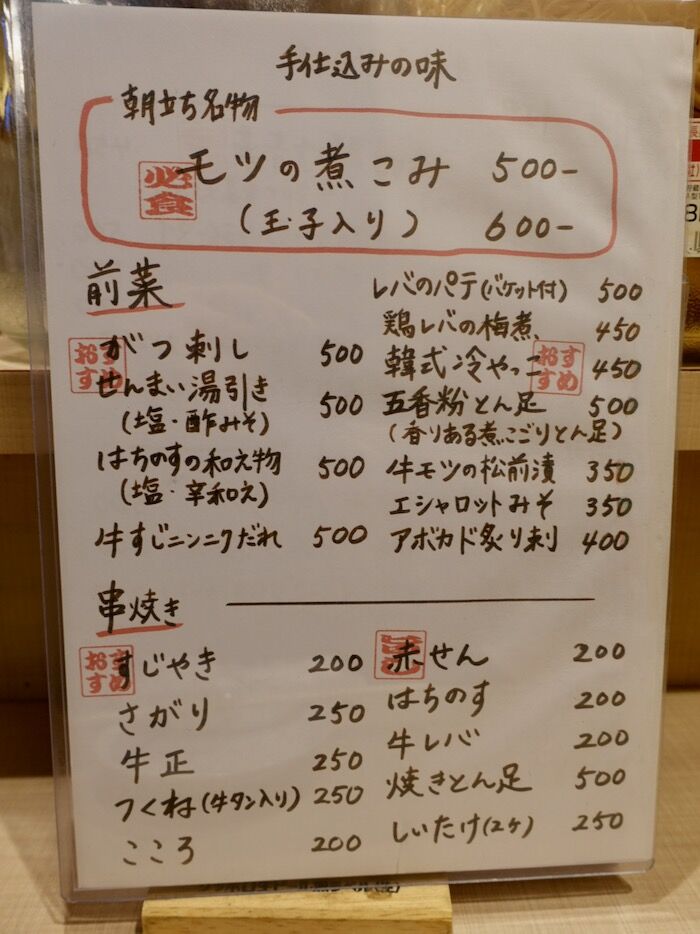 手仕込みの味
朝立ち名物
必食
モツの煮こみ 500-
(玉子入り) 600-
前菜
おすすめ
がつ刺し 500
せんまい湯引き 500
(塩・酢みそ)
はちのすの和え物 500
(塩・辛和え)
牛すじニンニクだれ 500
レバのパテ(バケット付) 500
鶏レバの梅煮 450
韓式冷やっこ 450
おすすめ
五香粉とん足 500
(香りある煮こごりとん足)
牛モツの松前漬 350
エシャロットみそ 350
アボカド炙り刺 400
串焼き
おすすめ
すじやき 200
さがり 250
牛正 250
つくね(牛タン入り) 250
こころ 200
赤せん 200
はちのす 200
牛レバ 200
焼きとん足 500
しいたけ(2ケ) 250